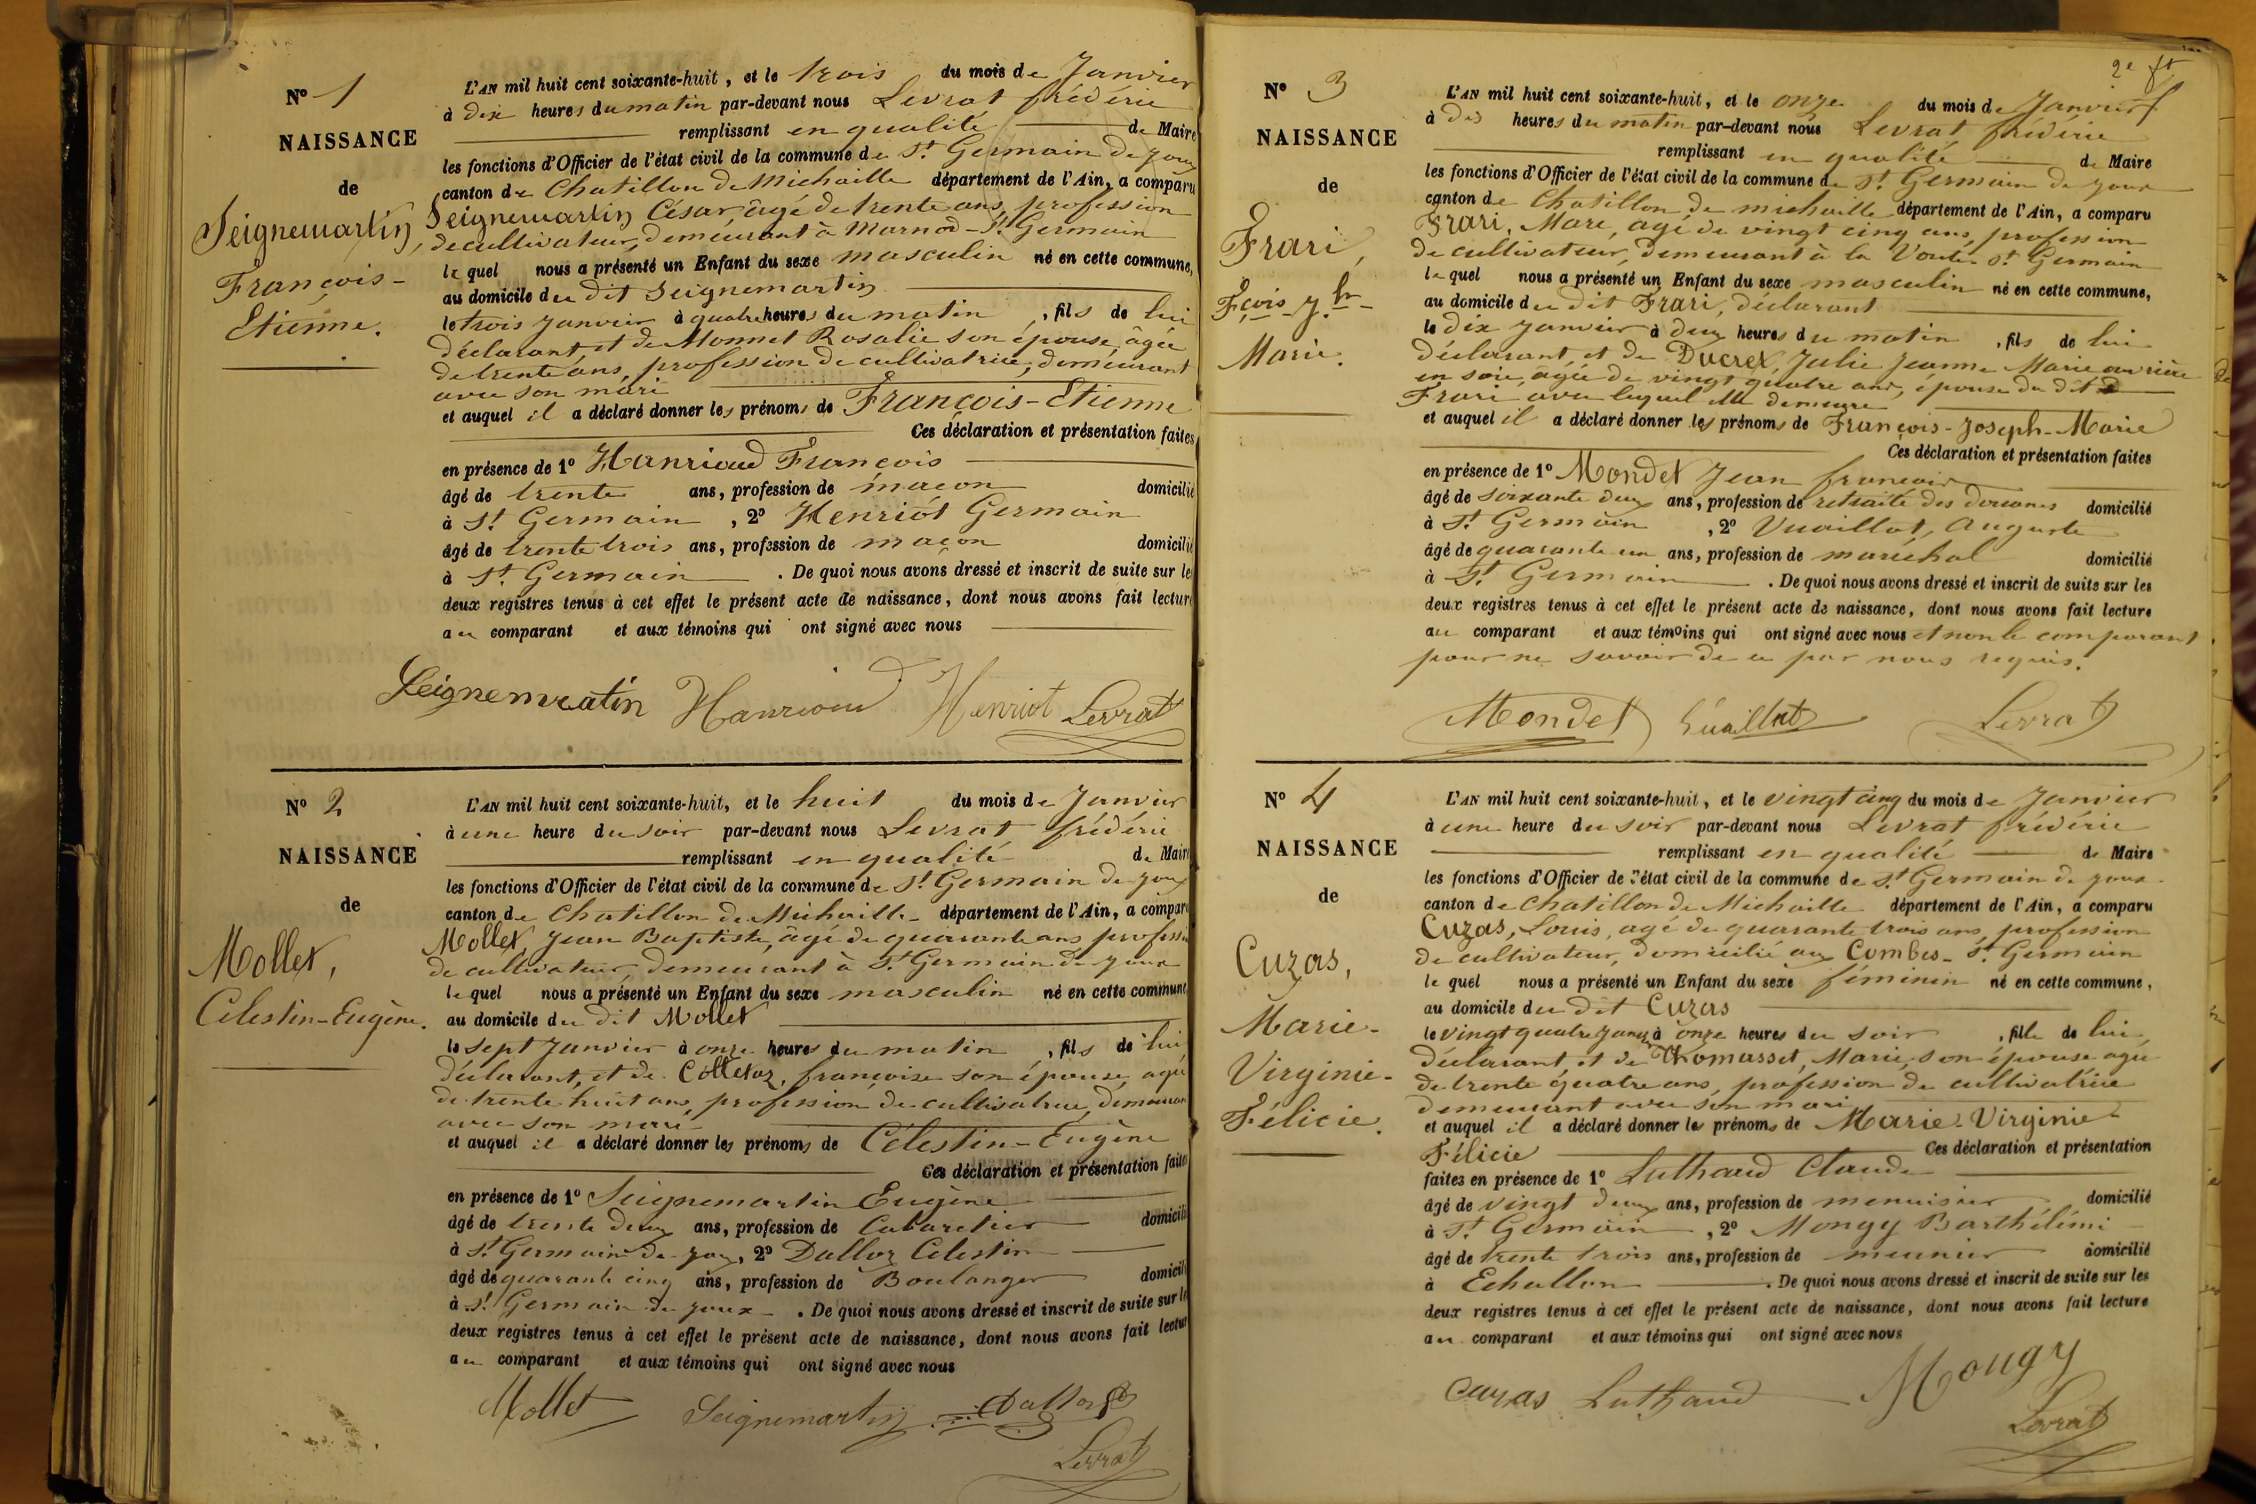 N° 1
NAISSANCE
de
Seignemartin,
François-
Etienne.
L'AN mil huit cent soixante-huit, et le trois du mois de Janvier
à dix heures du matin par-devant nous Levrat frédéric
remplissant en qualité de Maire
les fonctions d'Officier de l'état civil de la commune de St Germain de Joux
canton de Chatillon de Michaille département de l'Ain, a comparu
Seignemartin César, âgé de trente ans, profession
de cultivateur, demeurant à Marnod-St Germain
le quel nous a présenté un Enfant du sexe masculin né en cette commune,
au domicile du dit Seignemartin
le trois Janvier à quatre heures du matin, fils de lui
déclarant, et de Monnet Rosalie son épouse, âgée
de trente ans, profession de cultivatrice, demeurant
avec son mari
et auquel il a déclaré donner les prénoms de François-Etienne
Ces déclaration et présentation faites
en présence de 1° Hanrioud François
âgé de trente ans, profession de maçon domicilié
à St Germain, 2° Henriot Germain
âgé de trente trois ans, profession de maçon domicilié
à St Germain. De quoi nous avons dressé et inscrit de suite sur les
deux registres tenus à cet effet le présent acte de naissance, dont nous avons fait lecture
au comparant et aux témoins qui ont signé avec nous
Seignemratin Hanrioud Henriot Levrat
N° 2
NAISSANCE
de
Mollet,
Célestin-Eugène.
L'AN mil huit cent soixante-huit, et le huit du mois de Janvier
à une heure du soir par-devant nous Levrat frédéric
remplissant en qualité de Maire
les fonctions d'Officier de l'état civil de la commune de St Germain de Joux
canton de Chatillon de Michaille département de l'Ain, a comparu
Mollet, Jean Baptiste, âgé de quarante ans, profession
de cultivateur, demeurant à St Germain de joux
le quel nous a présenté un Enfant du sexe masculin né en cette commune
au domicile du dit Mollet
le sept Janvier à onze heures du matin, fils de lui
déclarant, et de Colletaz, françoise son épouse, agée
de trente huit ans, profession de cultivatrice, demeurant
avec son mari
et auquel il a déclaré donner les prénoms de Célestin-Eugène
Ces déclaration et présentation faites
en présence de 1° Seignemartin Eugène
âgé de trente deux ans, profession de Cabaretier domicilié
à St Germain de joux, 2° Dalloz Célestin
âgé de quarante cinq ans, profession de Boulanger domicilié
à St Germain de joux. De quoi nous avons dressé et inscrit de suite sur les
deux registres tenus à cet effet le présent acte de naissance, dont nous avons fait lecture
au comparant et aux témoins qui ont signé avec nous
Mollet Seignemartin Dalloz
Levrat
2e ft
N° 3
NAISSANCE
de
Frari,
Fçois-Jph-
Marie.
L'AN mil huit cent soixante-huit, et le onze du mois de Janvier
à dix heures du matin par-devant nous Levrat frédéric
remplissant en qualité de Maire
les fonctions d'Officier de l'état civil de la commune de St Germain de joux
canton de Chatillon de michaille département de l'Ain, a comparu
Frari, Marc, agé de vingt cinq ans, profession
de cultivateur, demeurant à la Voute St Germain
le quel nous a présenté un Enfant du sexe masculin né en cette commune,
au domicile du dit Frari, déclarant
le dix Janvier à deux heures du matin, fils de lui
déclarant, et de Ducret, Julie Jeanne Marie ouvrière
en soie, agée de vingt quatre ans, épouse du dit
Frari avec lequel elle demeure
et auquel il a déclaré donner les prénoms de François-Joseph-Marie
Ces déclaration et présentation faites
en présence de 1° Mondet Jean françois
âgé de soixante deux ans, profession de retraité des douanes domicilié
à St Germain, 2° Vuaillat, Auguste
âgé de quarante un ans, profession de maréchal domicilié
à St Germain. De quoi nous avons dressé et inscrit de suite sur les
deux registres tenus à cet effet le présent acte de naissance, dont nous avons fait lecture
au comparant et aux témoins qui ont signé avec nous et non le comparant
pour ne savoir de ce par nous requis.
Mondet Vuaillat Levrat
N° 4
NAISSANCE
de
Cuzas,
Marie-
Virginie-
Félicie.
L'AN mil huit cent soixante-huit, et le vingt cinq du mois de Janvier
à une heure du soir par-devant nous Levrat frédéric
remplissant en qualité de Maire
les fonctions d'Officier de l'état civil de la commune de St Germain de joux
canton de Chatillon de Michaille département de l'Ain, a comparu
Cuzas, Louis, agé de quarante trois ans, profession
de cultivateur, domicilié aux Combes-St Germain
le quel nous a présenté un Enfant du sexe féminin né en cette commune,
au domicile du dit Cuzas
le vingt quatre Janvr à onze heures du soir, fille de lui
déclarant, et de Thomasset, Marie, son épouse agée
de trente quatre ans, profession de cultivatrice
demeurant avec son mari
et auquel il a déclaré donner les prénoms de Marie-Virginie-
Félicie Ces déclaration et présentation
faites en présence de 1° Luthaud Claude
âgé de vingt deux ans, profession de menuisier domicilié
à St Germain, 2° Mongy Barthélémi
âgé de trente trois ans, profession de meunier domicilié
à Echallon. De quoi nous avons dressé et inscrit de suite sur les
deux registres tenus à cet effet le présent acte de naissance, dont nous avons fait lecture
au comparant et aux témoins qui ont signé avec nous
Cuzas Luthaud Mougy
Levrat